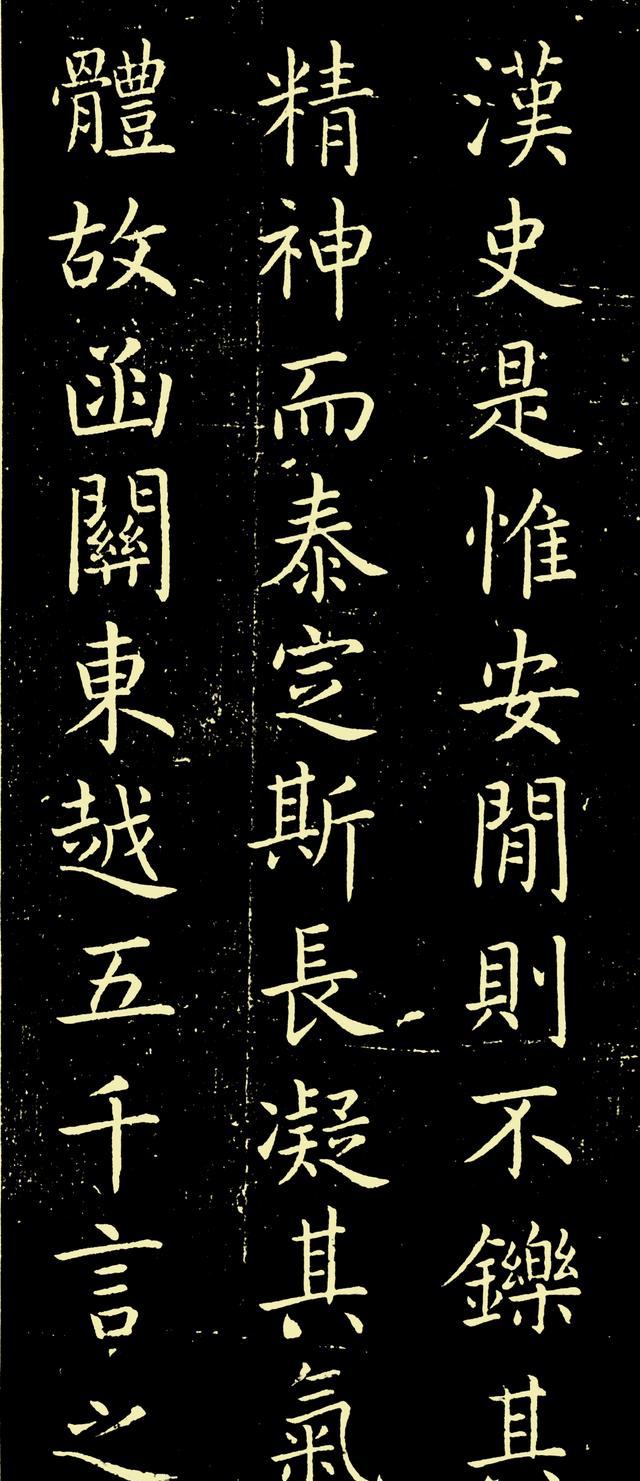 漢史是惟安閒則不鑠其
精神而泰定斯長凝其氣
體故函關東越五千言之